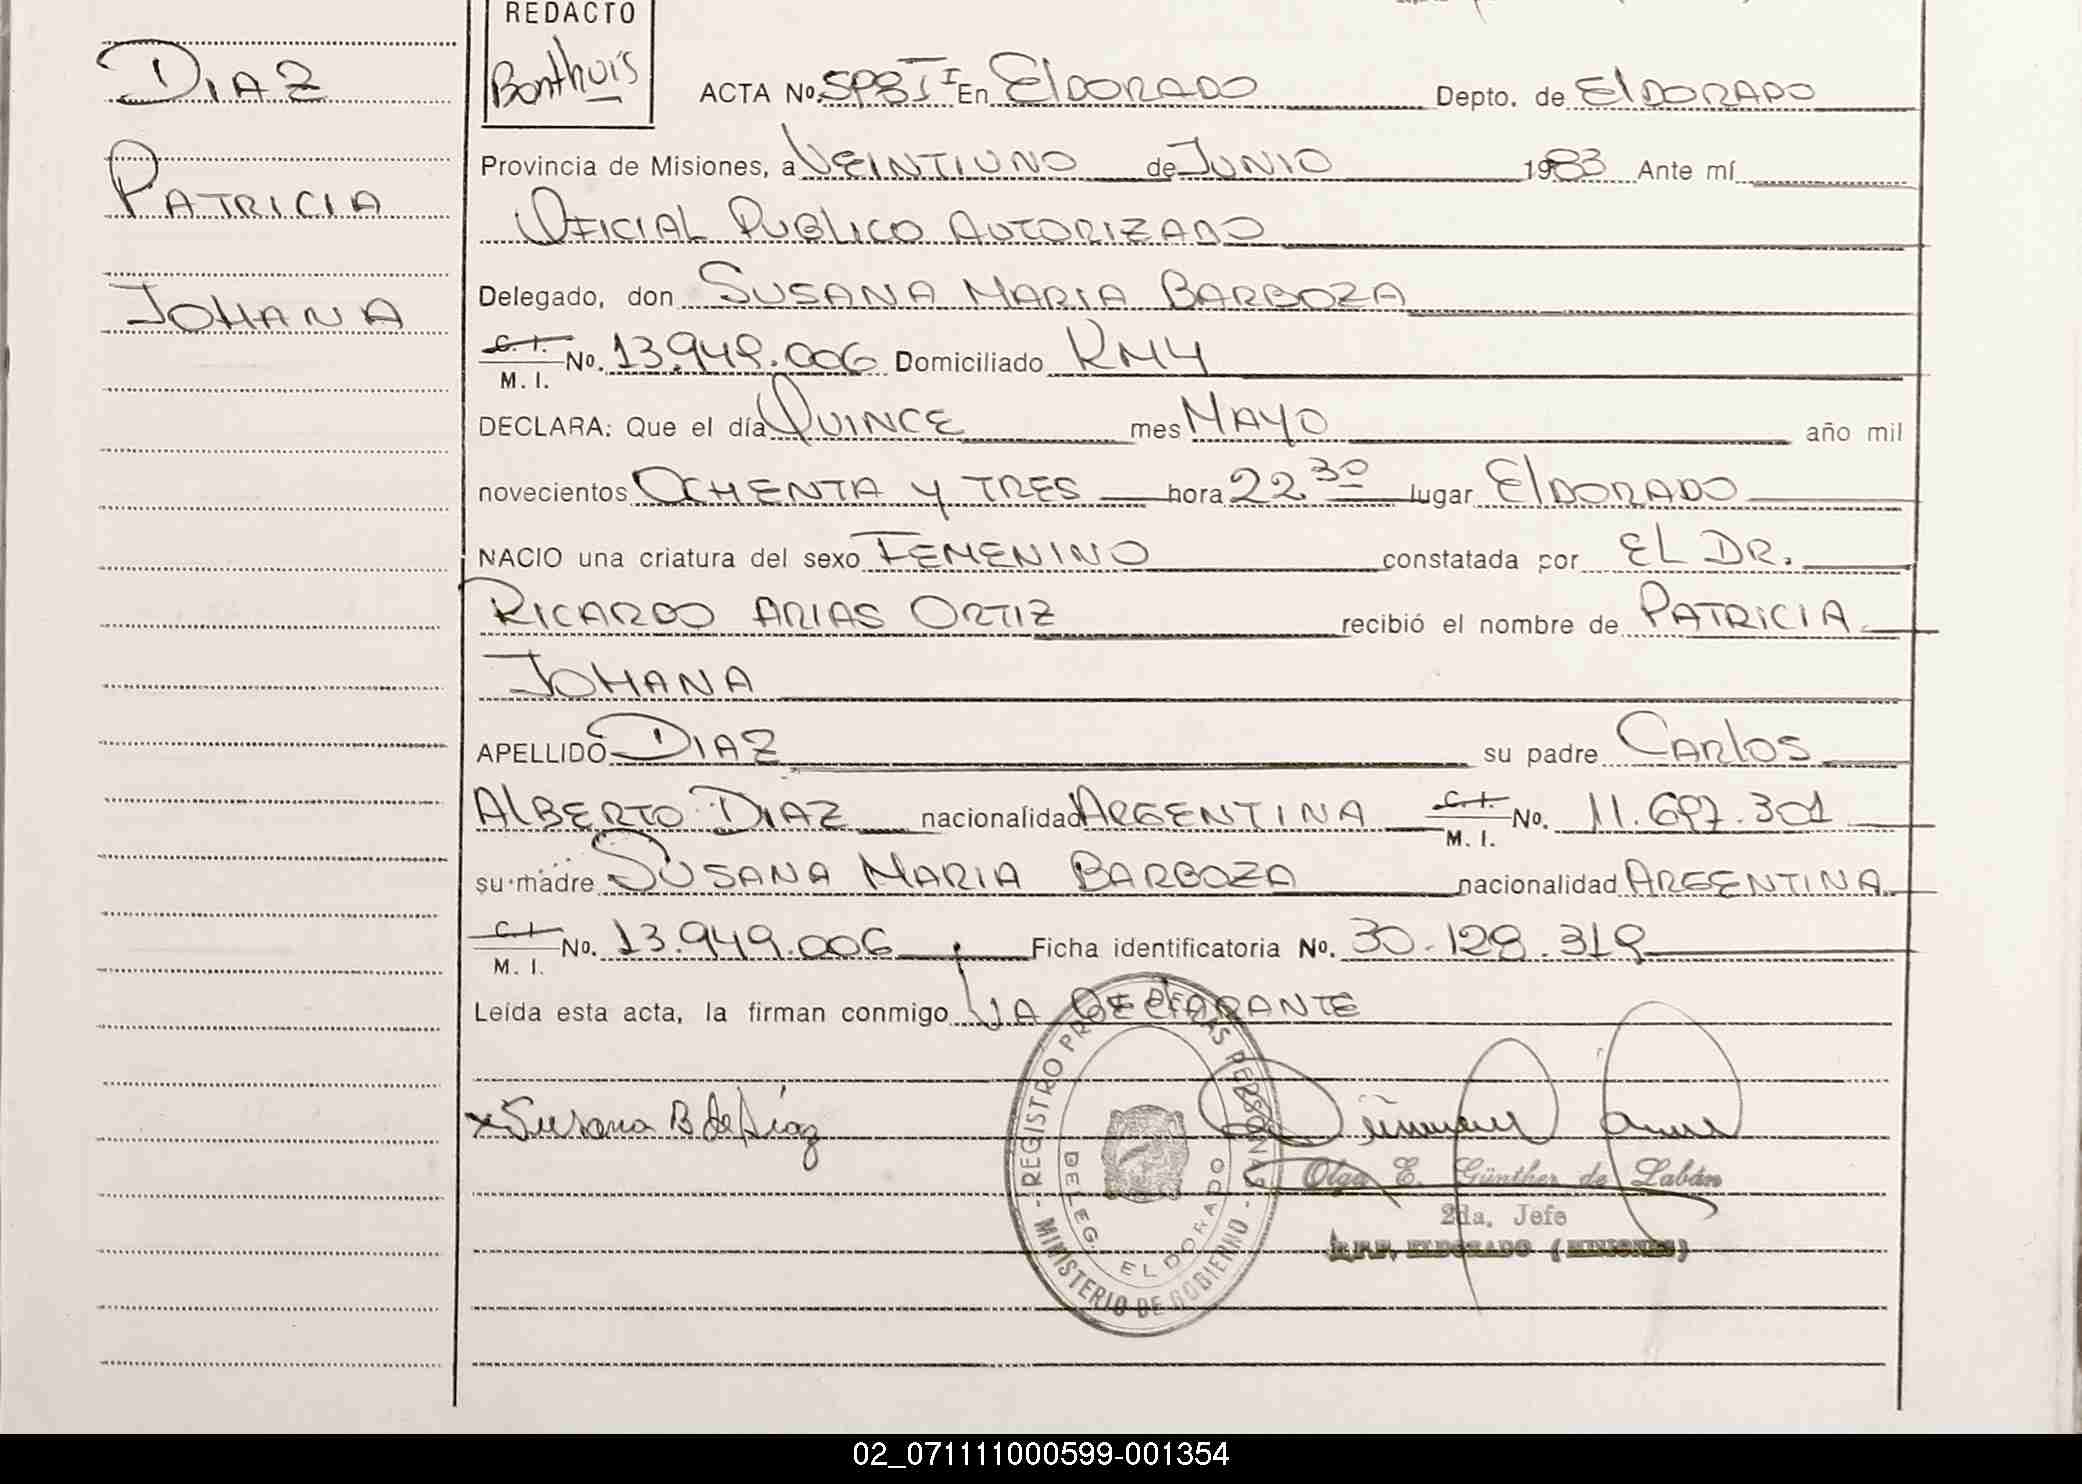 REDACTO
Bonthuis
DIAZ
PATRICIA
JOHANA
ACTA No. 598 TI En ElDORADO Depto. de ElDORADO
Provincia de Misiones, a VEINTIUNO de JUNIO 1983 Ante mí
OFICIAL PUBLICO AUTORIZADO
Delegado, don SUSANA MARIA BARBOZA
C. I. M. I. No. 13.949.006 Domiciliado KM4
DECLARA: Que el día QUINCE mes MAYO año mil
novecientos OCHENTA Y TRES hora 22 30 lugar ElDORADO
NACIO una criatura del sexo FEMENINO constatada por EL DR.
RICARDO ARIAS ORTIZ recibió el nombre de PATRICIA
JOHANA
APELLIDO DIAZ su padre CARlOS
AlBERTO DIAZ nacionalidad ARGENTINA C. I. M. I. No. 11.697.301
su madre SUSANA MARIA BARBOZA nacionalidad ARGENTINA
C. I. M. I. No. 13.949.006 Ficha identificatoria No. 30.129.319
Leída esta acta, la firman conmigo lA DEClARANTE
x Susana B de Díaz
REGISTRO PR DE LAS PERSONAS
MINISTERIO DE GOBIERNO
DELEG. ELDORADO
Olga E. Günther de Labán
2da. Jefe
R.P.P. ELDORADO (MISIONES)
02_071111000599-001354